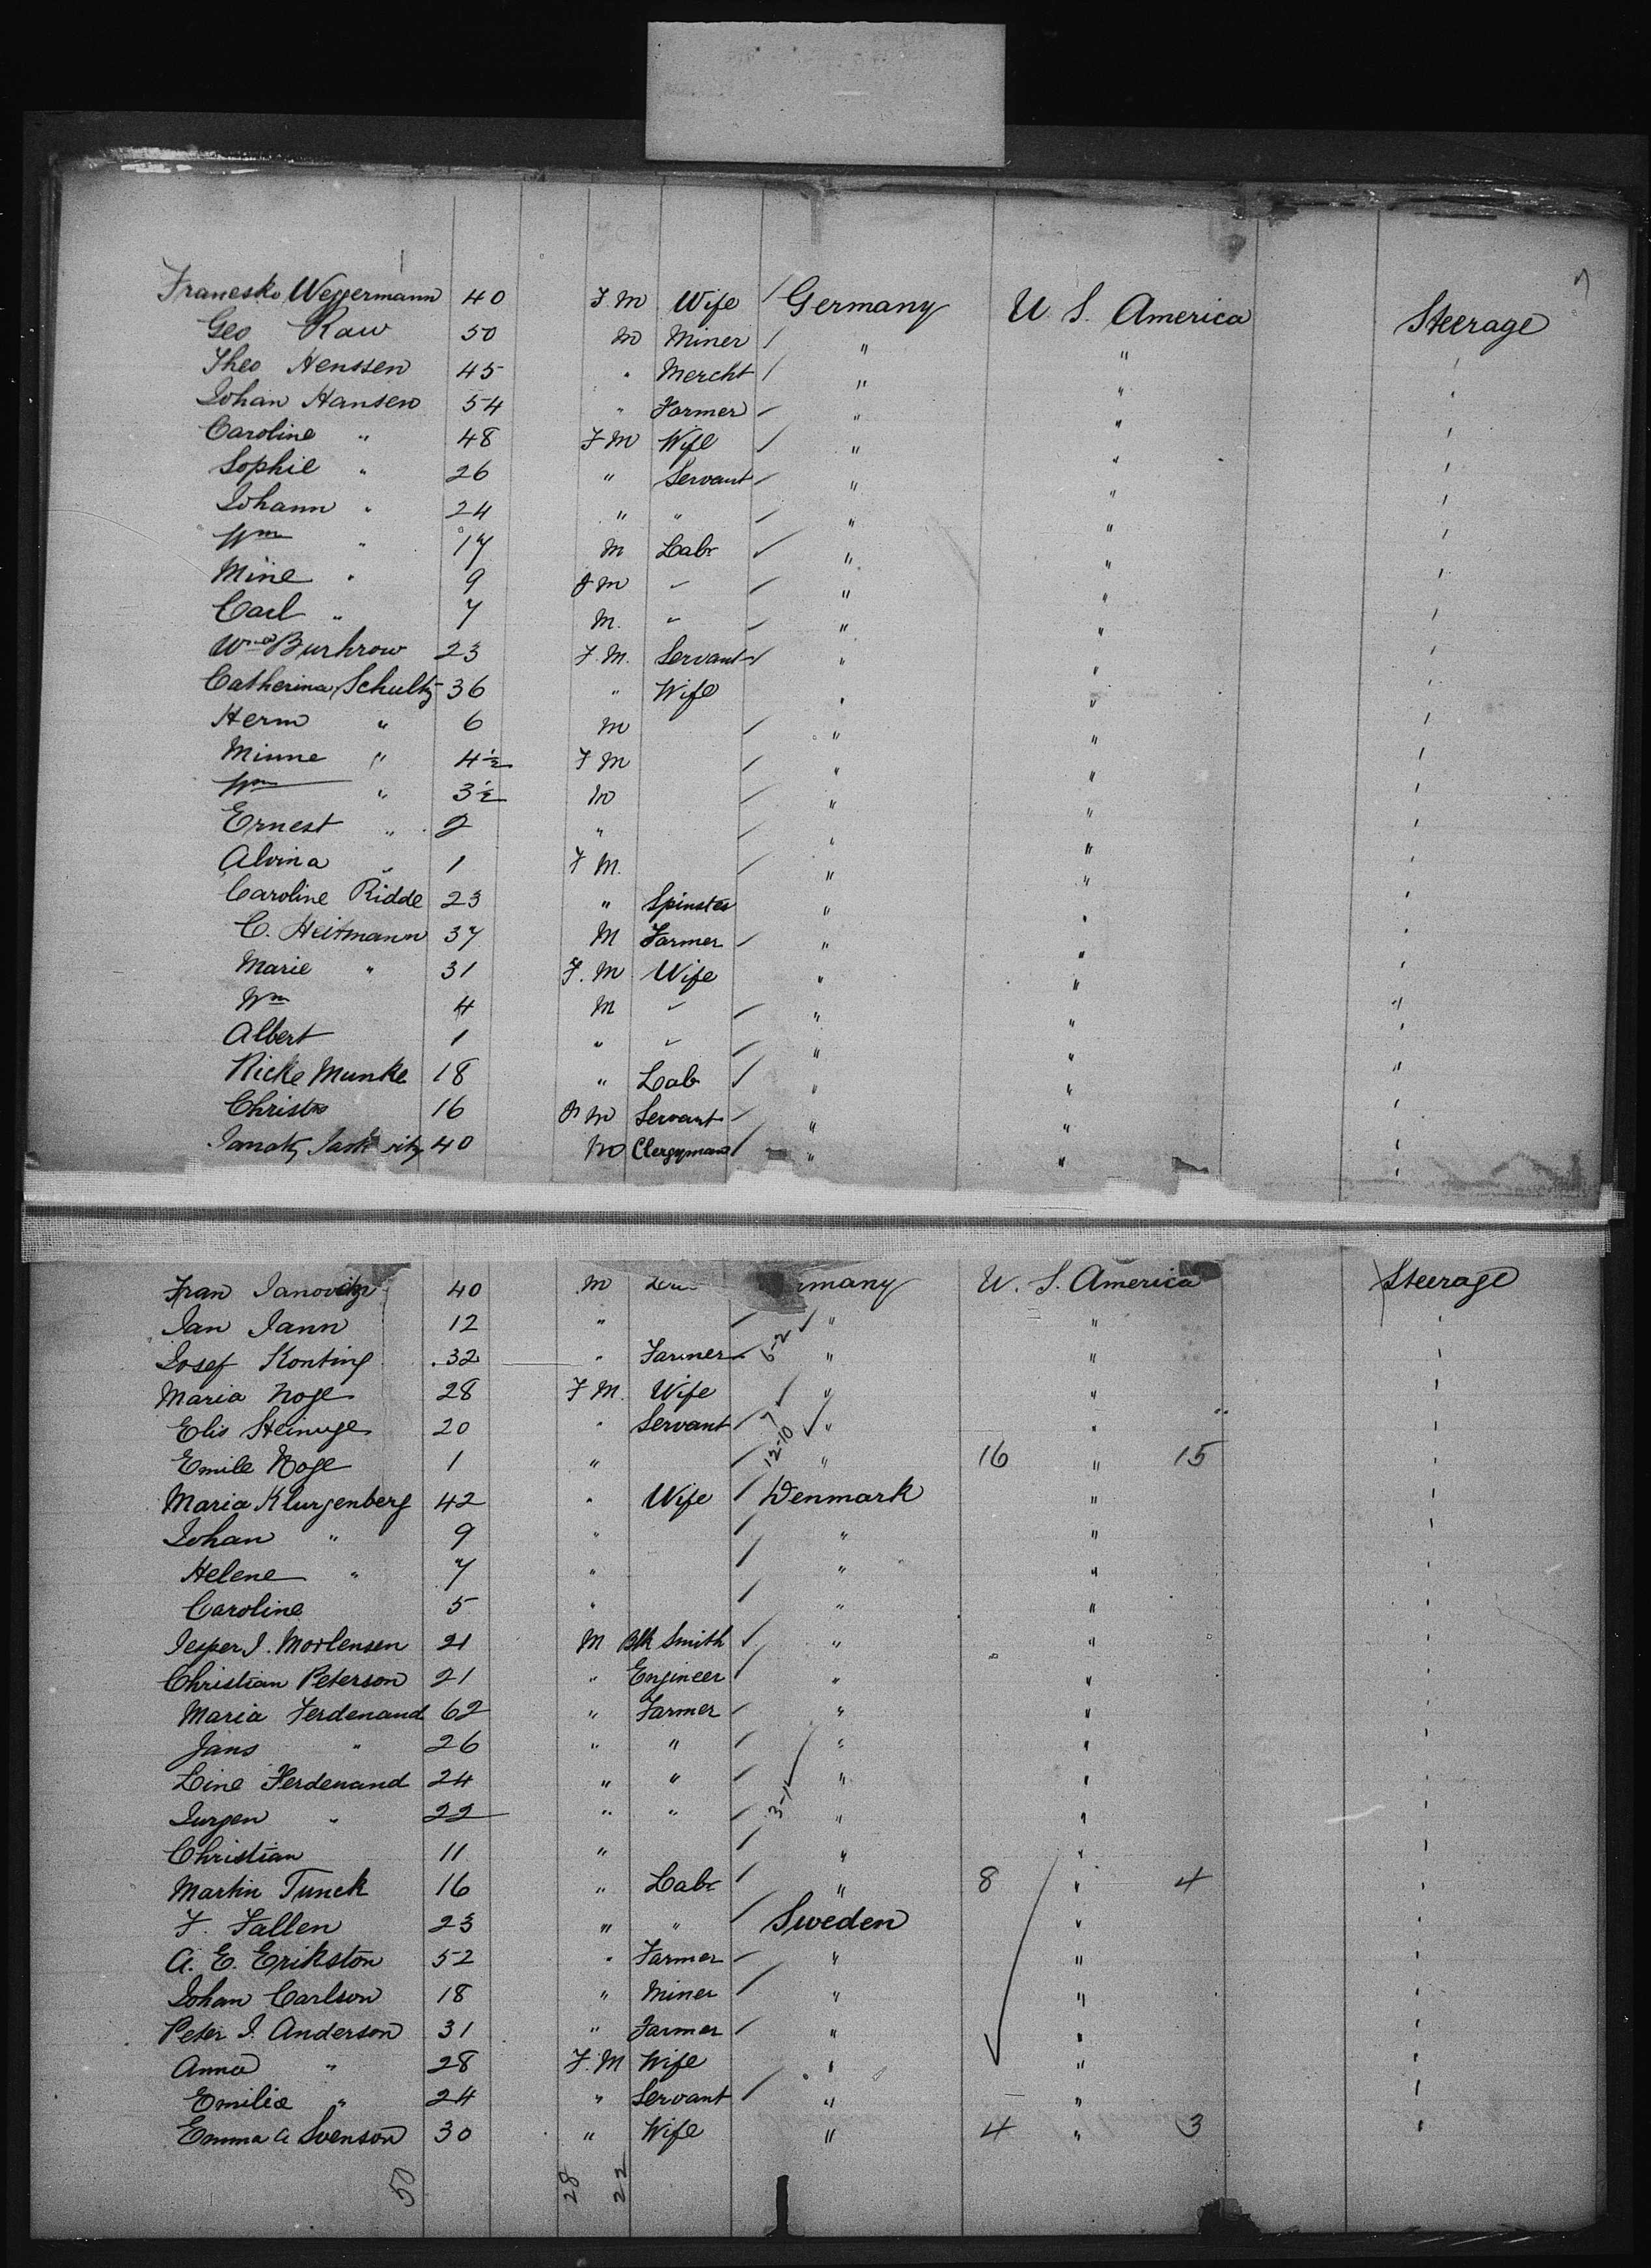 Franesko Weggermann 40 F.M Wife / Germany U S. America Steerage
Geo Raw 50 M Miner / " " '
Theo Henssen 45 " Mercht / " " '
Johan Hansen 54 " Farmer / " " '
Caroline " 48 F M Wife / " " '
Sophie " 26 " Servant / " " '
Johann " 24 " " / " " '
Wm " 17 M Labr / " " '
Mine " 9 F M " / " " '
Carl " 7 M. " / " " '
Wme Burhrow 23 F.M. Servant / " " '
Catherina Schultz 36 " Wife " " '
Herm " 6 M / " " '
Minne " 4½ F M / " " '
Wm " 3½ M / " " '
Ernest " 2 " / " " '
Alvina " 1 F M. / " " '
Caroline Ridde 23 " Spinster " " '
C. Heitmann 37 M Farmer / " " '
Marie " 31 F. M Wife " " '
Wm 4 M " / " " "
Albert 1 " " / " " '
Ricke Munke 18 " Lab / " " "
Christ 16 F M Servant / " " '
40 M Clergyman / " " '
Fran Janovitz 40 M many U. S. America Steerage
Jan Jann 12 " / " " '
Josef Konting 32 " Farmer / 6-2 " " '
Maria Noge 28 F M. Wife / " " '
Elis Steinuge 20 " Servant / 7 " " '
Emile Noge 1 " / 12-10 " 16 " 15 '
Maria Klurgenberg 42 " Wife / Denmark " '
Johan " 9 " / " " '
Helene " 7 " / " " '
Caroline 5 " / " " '
Jesper J. Mortensen 21 M Blk Smith / " " '
Christian Peterson 21 " Engineer / " " '
Maria Ferdenand 62 " Farmer / " " '
Jans " 26 " " / " " '
Line Ferdenand 24 " " / 3-1 " " '
Jurgen " 22 " " / " " '
Christian 11 " / " " '
Martin Tunck 16 " Labr / " 8 " 4 '
F. Fallen 23 " " / Sweden " '
A. E. Erikston 52 " Farmer / " " '
Johan Carlson 18 " Miner / " " '
Peter J. Anderson 31 " Farmer / " " '
Anna " 28 F. M Wife " " '
Emilie " 24 " Servant / " " '
Emma A Svenson 30 " Wife " 4 " 3 '
50 28 22